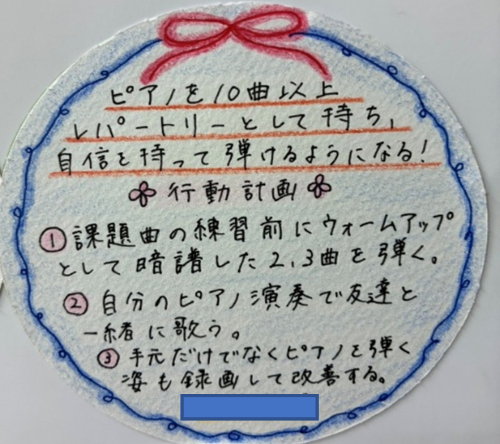 ピアノを10曲以上
レパートリーとして持ち、
自信を持って弾けるようになる!
行動計画
① 課題曲の練習前にウォームアップ
として暗譜した2,3曲を弾く。
② 自分のピアノ演奏で友達と
一緒に歌う。
③ 手元だけでなくピアノを弾く
姿も録画して改善する。